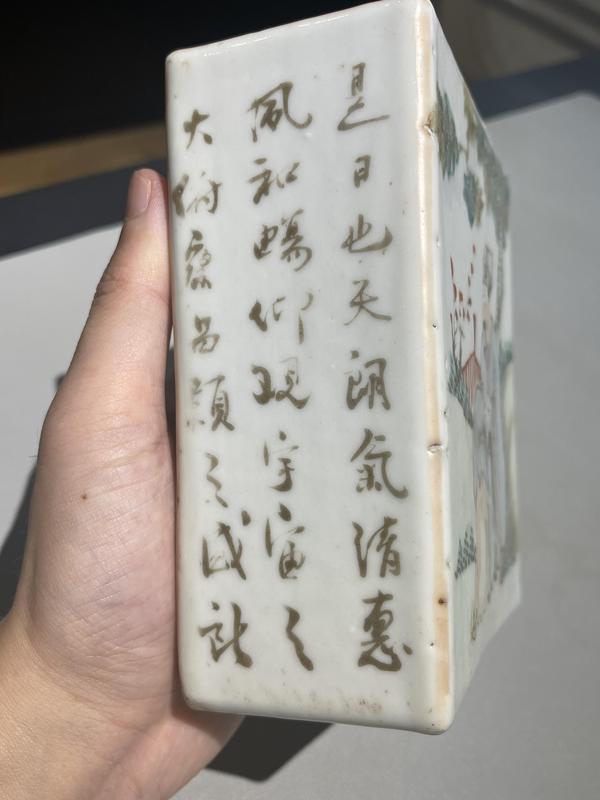 是日也天朗氣清惠
風和暢仰观宇宙之
大俯察品類之盛